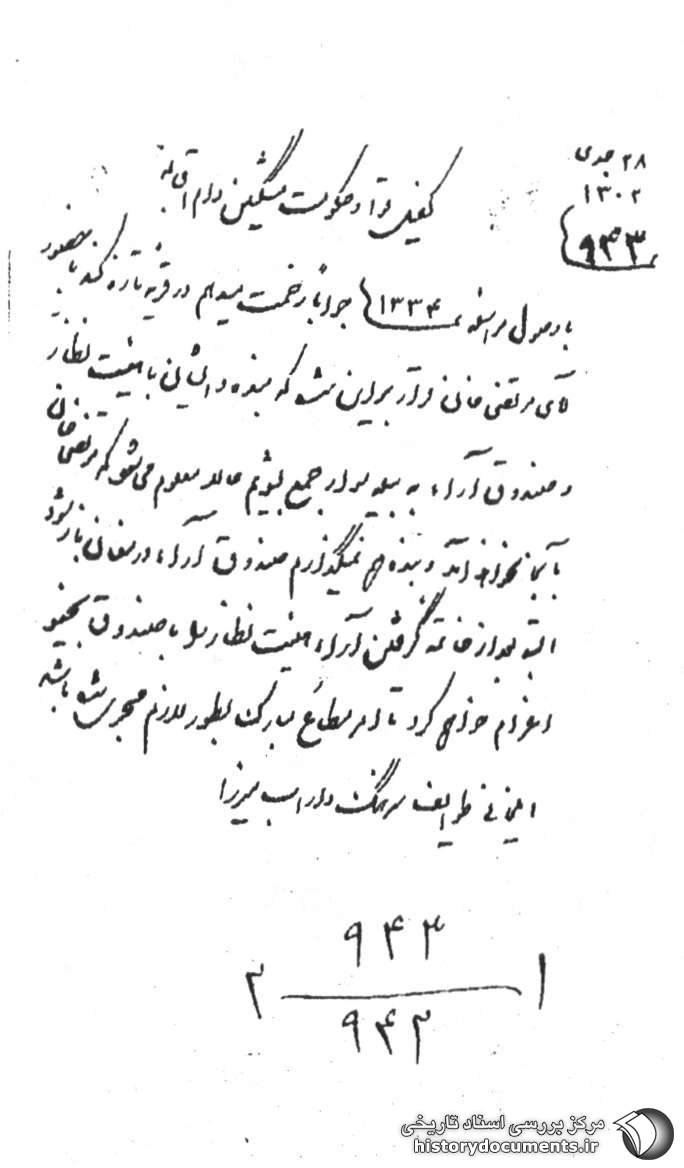 ۲۸ جدی
۱۳۰۲
۹۴۳
کفیل حکومت مشکین دام اقباله
با وصول مراسله ۱۳۳۴ جواباً زحمت میدهم در قریه تازه کند با حضور
آقای مرتضی خان قرار بر این شد که بنده و ایشان با هیئت نظار
و صندوق آراء به بیله سوار جمع بشویم حالا معلوم می‌شود که مرتضی خان
بآنجا نخواهد آمد و بنده هم نمیگذارم صندوق آراء در مغان باز شود
البته بعد از خاتمه گرفتن آراء هیئت نظار را با صندوق بخیاو
اعزام خواهم کرد تا امر مطاع مبارک بطور لازم مجری شده باشد
ایلخانی طوایف سرهنگ داراب میرزا
۹۴۳
۱ ۲
۹۴۳
مرکز بررسی اسناد تاریخی
historydocuments.ir